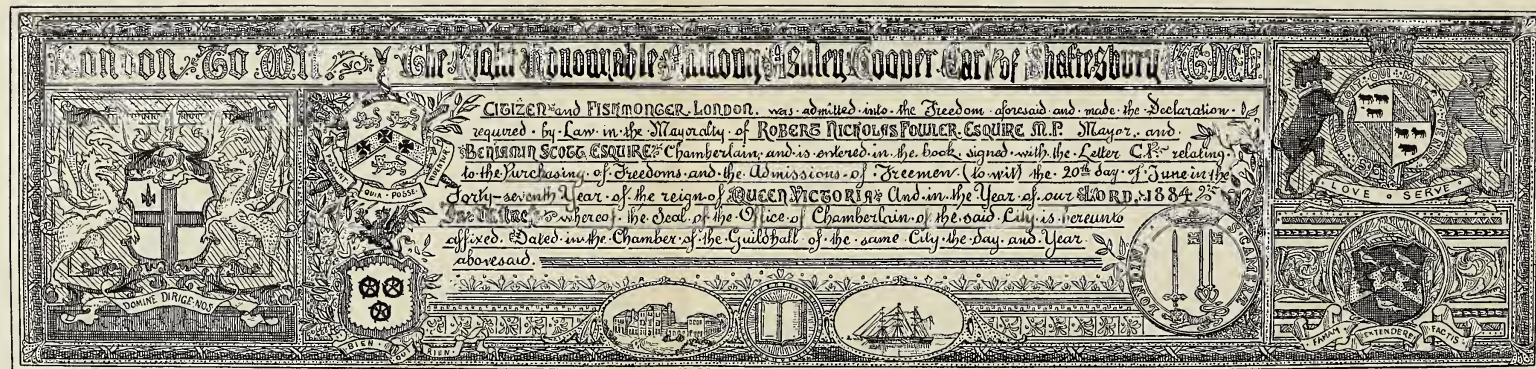 London To Wit. The Right Honourable Antony Ashley Cooper Earl of Shaftesbury K.G. D.C.L.
CITIZEN and FISHMONGER. LONDON. was admitted into the Freedom aforesaid and made the Declaration
required by Law in the Mayoralty of ROBERT NICHOLAS FOWLER. ESQUIRE M.P. Mayor, and
BENJAMIN SCOTT, ESQUIRE Chamberlain, and is entered in the book signed with the Letter C.F. relating
to the Purchasing of Freedoms and the Admissions of Freemen (to wit) the 20th day of June in the
Forty-seventh Year of the reign of QUEEN VICTORIA And in the Year of our LORD, 1884
whereof the Seal of the Office of Chamberlain of the said City is hereunto
affixed. Dated in the Chamber of the Guildhall of the same City the day and Year
abovesaid.
DOMINE DIRIGE NOS
QUIA POSSE
BIEN OU RIEN
QUI MAL Y
LOVE SERVE
FAMAM EXTENDERE FACTIS